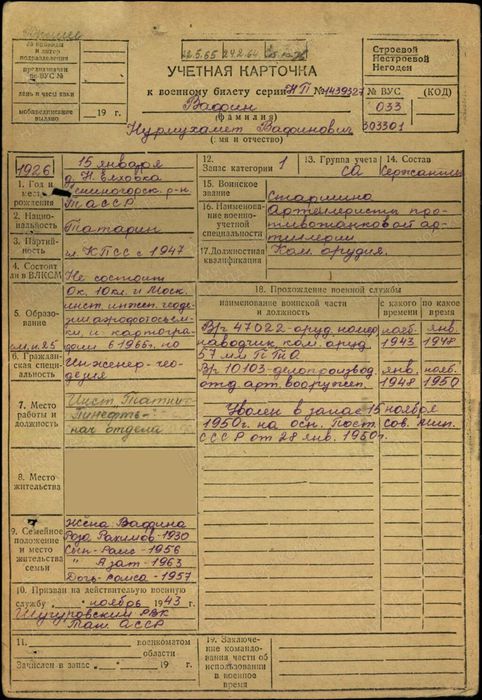 22.5.65 24.2.64
за приводы
и литер
подразделения
предназначен
по ВУС №
день и часы явки
мобпредписание
выдано
19 г.
Строевой
Нестроевой
Негоден
УЧЕТНАЯ КАРТОЧКА
к военному билету серии НП № 1439327
№ ВУС
(КОД)
Вафин
033
(фамилия)
Нурмухамет Вафинович
303301
(имя и отчество)
1926
15 января
1. Год и
место
рождения
д. Н. Елховка
р-н
ТАССР
2. Нацио-
нальность
Татарин
3. Партий-
ность
чл. КПСС с 1947
4. Состоит
ли в ВЛКСМ
Не состоит
5. Образо-
вание
Ок. 10 кл. и Моск.
инст. инжен. геоде-
зии аэрофотосъем-
ки и картогра-
фии в 1966 г. по
6. Гражданская
специальность
Инженер-гео-
дезия
7. Место
работы и
должность
Инст. Татни-
пинефть-
нач. отдела
8. Место
жительства
9. Семейное
положение
и место
жительства
семьи
Жена Вафина
Роза Рахимов-1930
Сын-Раис-1956
" Азат-1963
Дочь-Раиса-1957
10. Призван на действительную военную
службу „ ноябрь 1943 г.
Шугуровским РВК
Тат АССР
11.
военкоматом
области
Зачислен в запас „
19 г.
12.
Запас категории
1
13. Группа учета
СА
14. Состав
Сержанты
15. Воинское
звание
Старшина
16. Наименование
военно-
учетной
специальности
Артиллеристы про-
тивотанковой ар-
тиллерии
17. Должностная
квалификация
Ком. орудия.
18. Прохождение военной службы
наименование воинской части
и должность
с какого
времени
по какое
время
В/ч 47022-оруд. номер,
наводчик, ком. оруд.
57 мм ПТО
нояб.
1943
янв.
1948
В/ч 10103-делопроизвод.
отд. арт. вооружен.
янв.
1948
нояб.
1950
Уволен в запас 15 ноября
1950г. на осн. Пост. Сов. Мин.
СССР от 28 янв. 1950г.
19. Заключение
командова-
ния части об
использовании
в военное
время